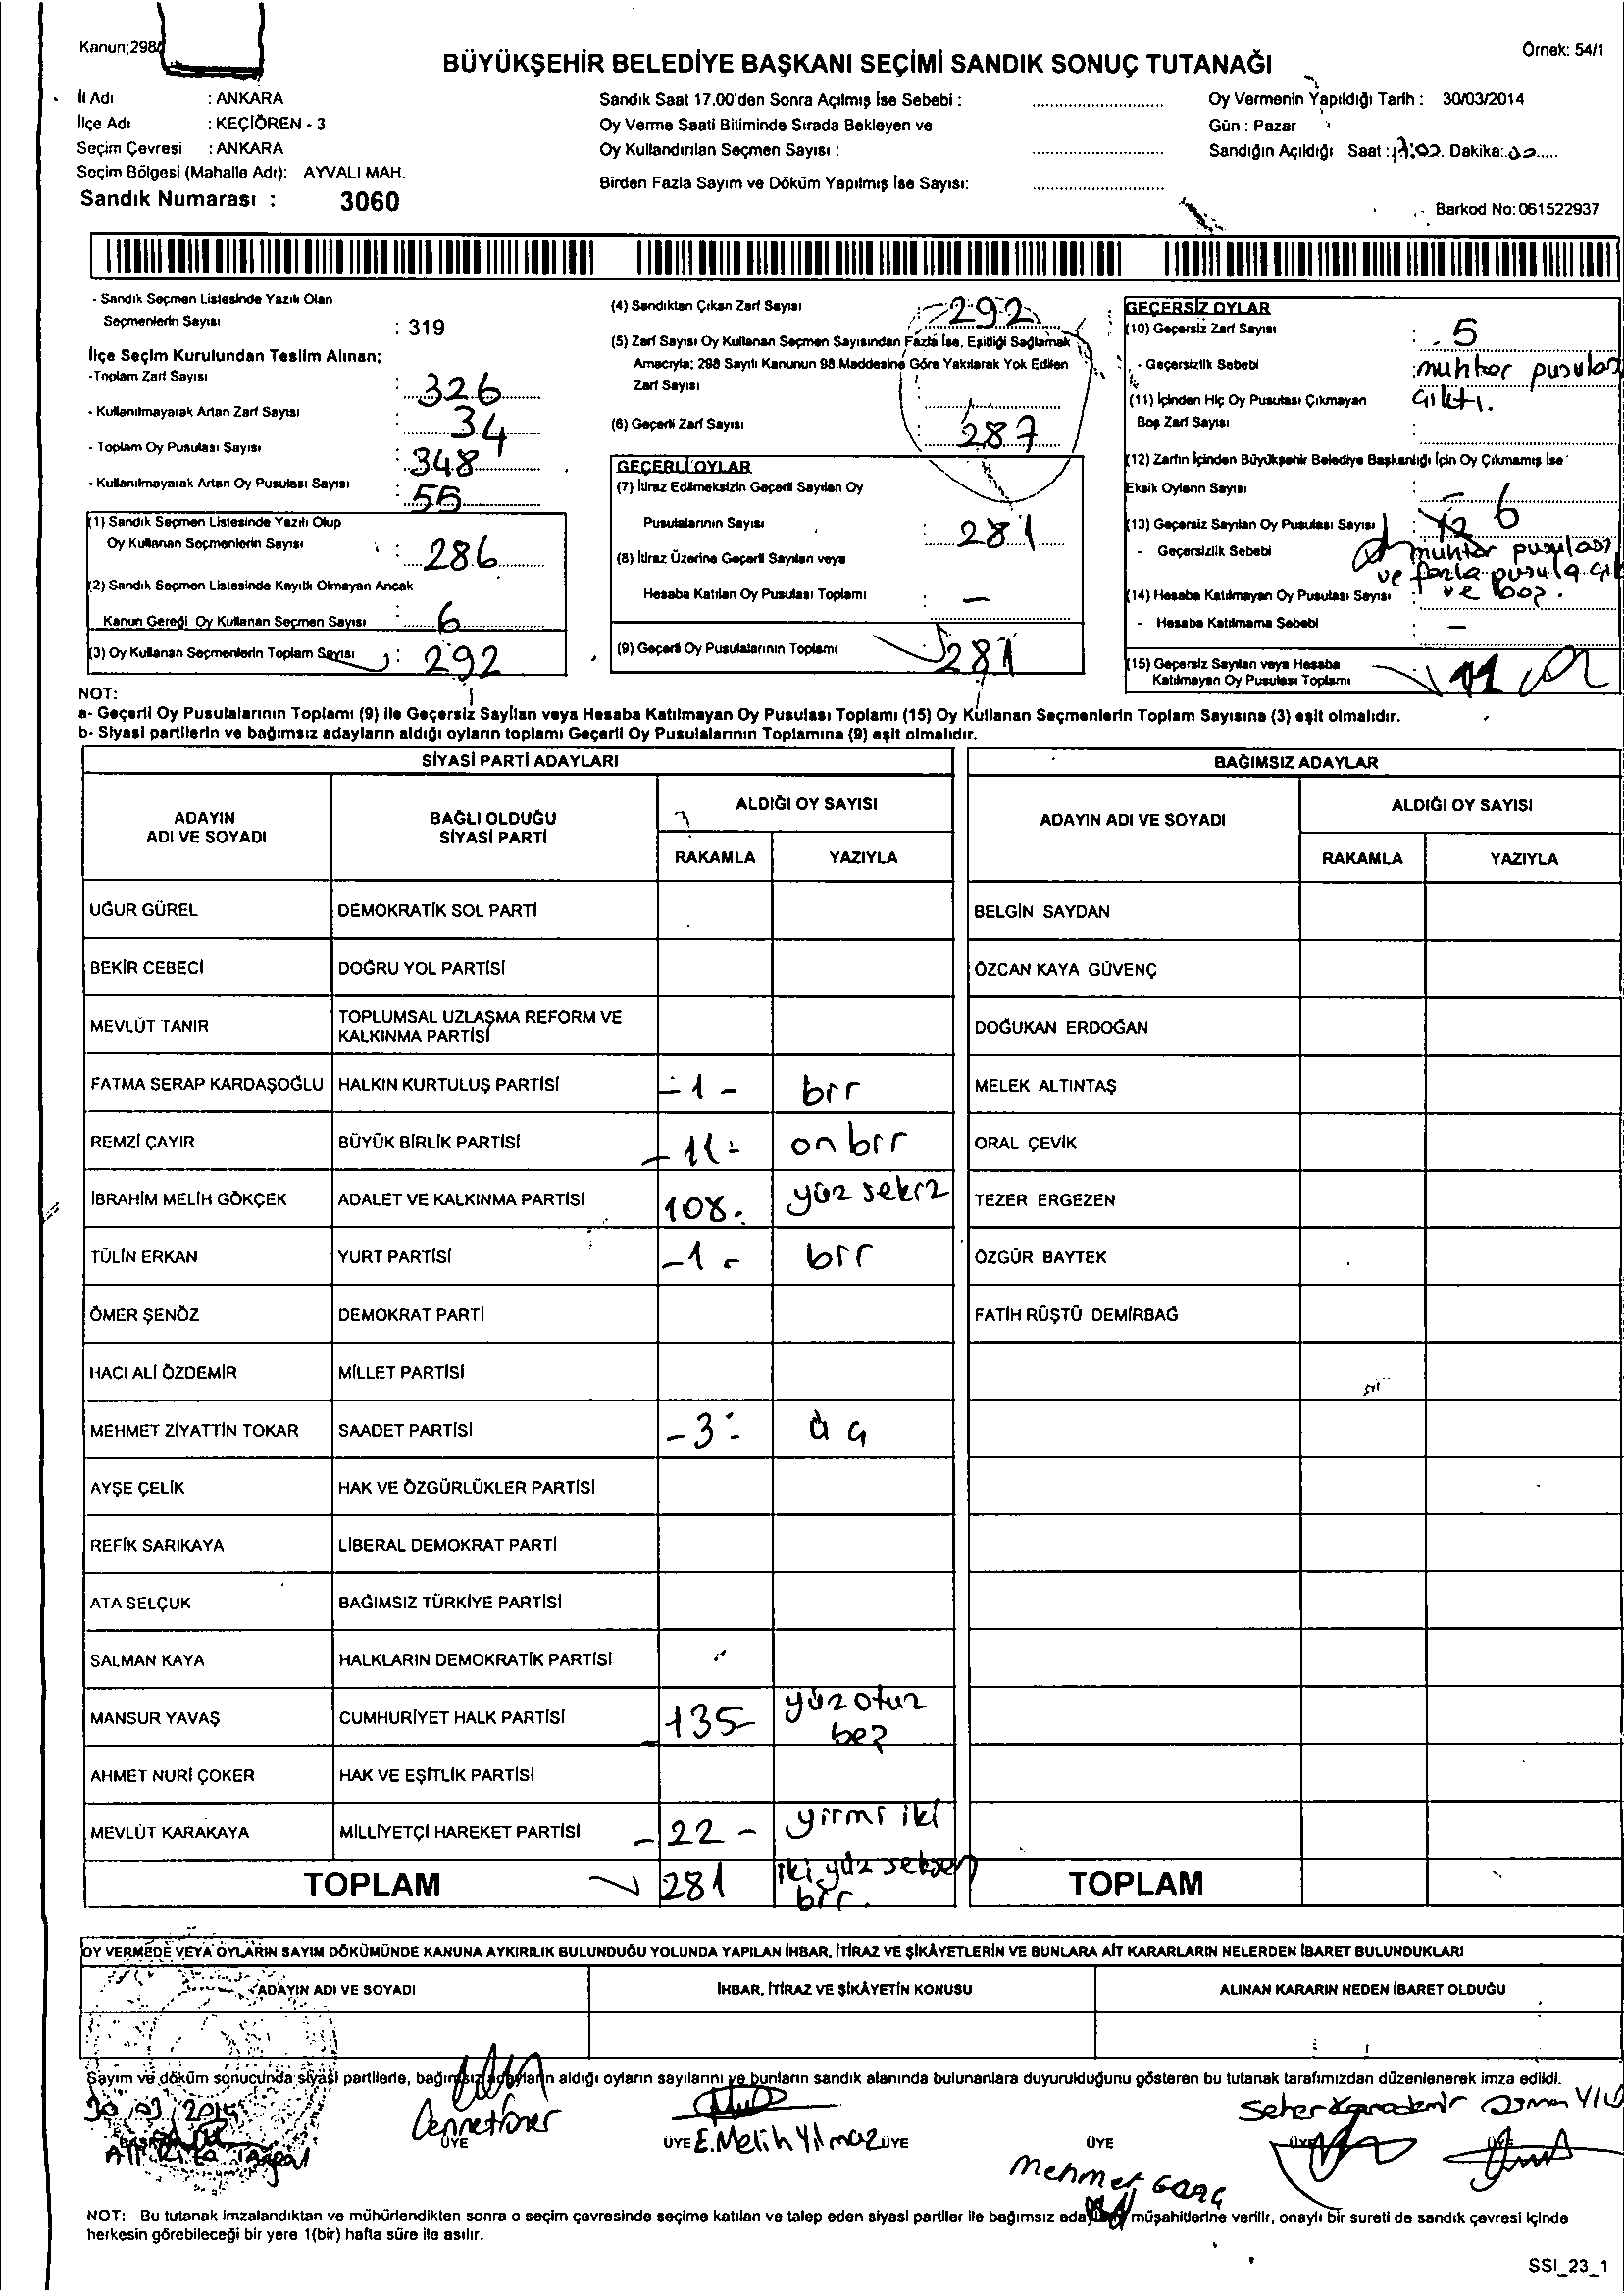 Kanun;298
Örnek: 54/1
BÜYÜKŞEHİR BELEDİYE BAŞKANI SEÇİMİ SANDIK SONUÇ TUTANAĞI
İl Adı : ANKARA
İlçe Adı : KEÇİÖREN - 3
Seçim Çevresi : ANKARA
Seçim Bölgesi (Mahalle Adı): AYVALI MAH.
Sandık Numarası : 3060
Sandık Saat 17.00'den Sonra Açılmış İse Sebebi :
Oy Verme Saati Bitiminde Sırada Bekleyen ve
Oy Kullandırılan Seçmen Sayısı :
Birden Fazla Sayım ve Döküm Yapılmış İse Sayısı:
Oy Vermenin Yapıldığı Tarih : 30/03/2014
Gün : Pazar
Sandığın Açıldığı Saat : 17:02 Dakika:
Barkod No: 061522937
- Sandık Seçmen Listesinde Yazılı Olan
Seçmenlerin Sayısı : 319
İlçe Seçim Kurulundan Teslim Alınan;
-Toplam Zarf Sayısı : 326
- Kullanılmayarak Artan Zarf Sayısı : 34
- Toplam Oy Pusulası Sayısı : 348
- Kullanılmayarak Artan Oy Pusulası Sayısı : 55
(1) Sandık Seçmen Listesinde Yazılı Olup
Oy Kullanan Seçmenlerin Sayısı : 286
(2) Sandık Seçmen Listesinde Kayıtlı Olmayan Ancak
Kanun Gereği Oy Kullanan Seçmen Sayısı : 6
(3) Oy Kullanan Seçmenlerin Toplam Sayısı : 292
(4) Sandıktan Çıkan Zarf Sayısı 292
(5) Zarf Sayısı Oy Kullanan Seçmen Sayısından Fazla İse, Eşitliği Sağlamak
Amacıyla; 298 Sayılı Kanunun 98.Maddesine Göre Yakılarak Yok Edilen
Zarf Sayısı
(6) Geçerli Zarf Sayısı : 287
GEÇERLİ OYLAR
(7) İtiraz Edilmeksizin Geçerli Sayılan Oy
Pusulalarının Sayısı : 281
(8) İtiraz Üzerine Geçerli Sayılan veya
Hesaba Katılan Oy Pusulası Toplamı : -
(9) Geçerli Oy Pusulalarının Toplamı 281
GEÇERSİZ OYLAR
(10) Geçersiz Zarf Sayısı : 5
- Geçersizlik Sebebi : muhtar pusulası
çıktı.
(11) İçinden Hiç Oy Pusulası Çıkmayan
Boş Zarf Sayısı :
(12) Zarfın İçinden Büyükşehir Belediye Başkanlığı İçin Oy Çıkmamış İse
Eksik Oyların Sayısı : -
(13) Geçersiz Sayılan Oy Pusulası Sayısı : 6
- Geçersizlik Sebebi muhtar pusulası
ve fazla pusula
ve boş.
(14) Hesaba Katılmayan Oy Pusulası Sayısı :
- Hesaba Katılmama Sebebi : -
(15) Geçersiz Sayılan veya Hesaba
Katılmayan Oy Pusulası Toplamı 11
NOT:
a- Geçerli Oy Pusulalarının Toplamı (9) ile Geçersiz Sayılan veya Hesaba Katılmayan Oy Pusulası Toplamı (15) Oy Kullanan Seçmenlerin Toplam Sayısına (3) eşit olmalıdır.
b- Siyasi partilerin ve bağımsız adayların aldığı oyların toplamı Geçerli Oy Pusulalarının Toplamına (9) eşit olmalıdır.
SİYASİ PARTİ ADAYLARI
BAĞIMSIZ ADAYLAR
ADAYIN
ADI VE SOYADI
BAĞLI OLDUĞU
SİYASİ PARTİ
ALDIĞI OY SAYISI
RAKAMLA YAZIYLA
ADAYIN ADI VE SOYADI
ALDIĞI OY SAYISI
RAKAMLA YAZIYLA
UĞUR GÜREL DEMOKRATİK SOL PARTİ BELGİN SAYDAN
BEKİR CEBECİ DOĞRU YOL PARTİSİ ÖZCAN KAYA GÜVENÇ
MEVLÜT TANIR TOPLUMSAL UZLAŞMA REFORM VE
KALKINMA PARTİSİ DOĞUKAN ERDOĞAN
FATMA SERAP KARDAŞOĞLU HALKIN KURTULUŞ PARTİSİ -1- bir MELEK ALTINTAŞ
REMZİ ÇAYIR BÜYÜK BİRLİK PARTİSİ -11- on bir ORAL ÇEVİK
İBRAHİM MELİH GÖKÇEK ADALET VE KALKINMA PARTİSİ 108. yüz sekiz TEZER ERGEZEN
TÜLİN ERKAN YURT PARTİSİ -1- bir ÖZGÜR BAYTEK
ÖMER ŞENÖZ DEMOKRAT PARTİ FATİH RÜŞTÜ DEMİRBAĞ
HACI ALİ ÖZDEMİR MİLLET PARTİSİ
MEHMET ZİYATTİN TOKAR SAADET PARTİSİ -3- üç
AYŞE ÇELİK HAK VE ÖZGÜRLÜKLER PARTİSİ
REFİK SARIKAYA LİBERAL DEMOKRAT PARTİ
ATA SELÇUK BAĞIMSIZ TÜRKİYE PARTİSİ
SALMAN KAYA HALKLARIN DEMOKRATİK PARTİSİ
MANSUR YAVAŞ CUMHURİYET HALK PARTİSİ 135- yüz otuz
beş
AHMET NURİ ÇOKER HAK VE EŞİTLİK PARTİSİ
MEVLÜT KARAKAYA MİLLİYETÇİ HAREKET PARTİSİ -22- yirmi iki
TOPLAM 281 iki yüz seksen
bir. TOPLAM
OY VERMEDE VEYA OYLARIN SAYIM DÖKÜMÜNDE KANUNA AYKIRILIK BULUNDUĞU YOLUNDA YAPILAN İHBAR, İTİRAZ VE ŞİKÂYETLERİN VE BUNLARA AİT KARARLARIN NELERDEN İBARET BULUNDUKLARI
ADAYIN ADI VE SOYADI İHBAR, İTİRAZ VE ŞİKÂYETİN KONUSU ALINAN KARARIN NEDEN İBARET OLDUĞU
Sayım ve döküm sonucunda siyasi partilerle, bağımsız adayların aldığı oyların sayılarını ve bunların sandık alanında bulunanlara duyurulduğunu gösteren bu tutanak tarafımızdan düzenlenerek imza edildi.
30/03/2014
BAŞKAN ÜYE ÜYE E. Melih Yılmaz ÜYE ÜYE ÜYE ÜYE
Seher Karademir Osman
Mehmet
NOT: Bu tutanak imzalandıktan ve mühürlendikten sonra o seçim çevresinde seçime katılan ve talep eden siyasi partiler ile bağımsız aday müşahitlerine verilir, onaylı bir sureti de sandık çevresi içinde
herkesin görebileceği bir yere 1(bir) hafta süre ile asılır.
SSI_23_1